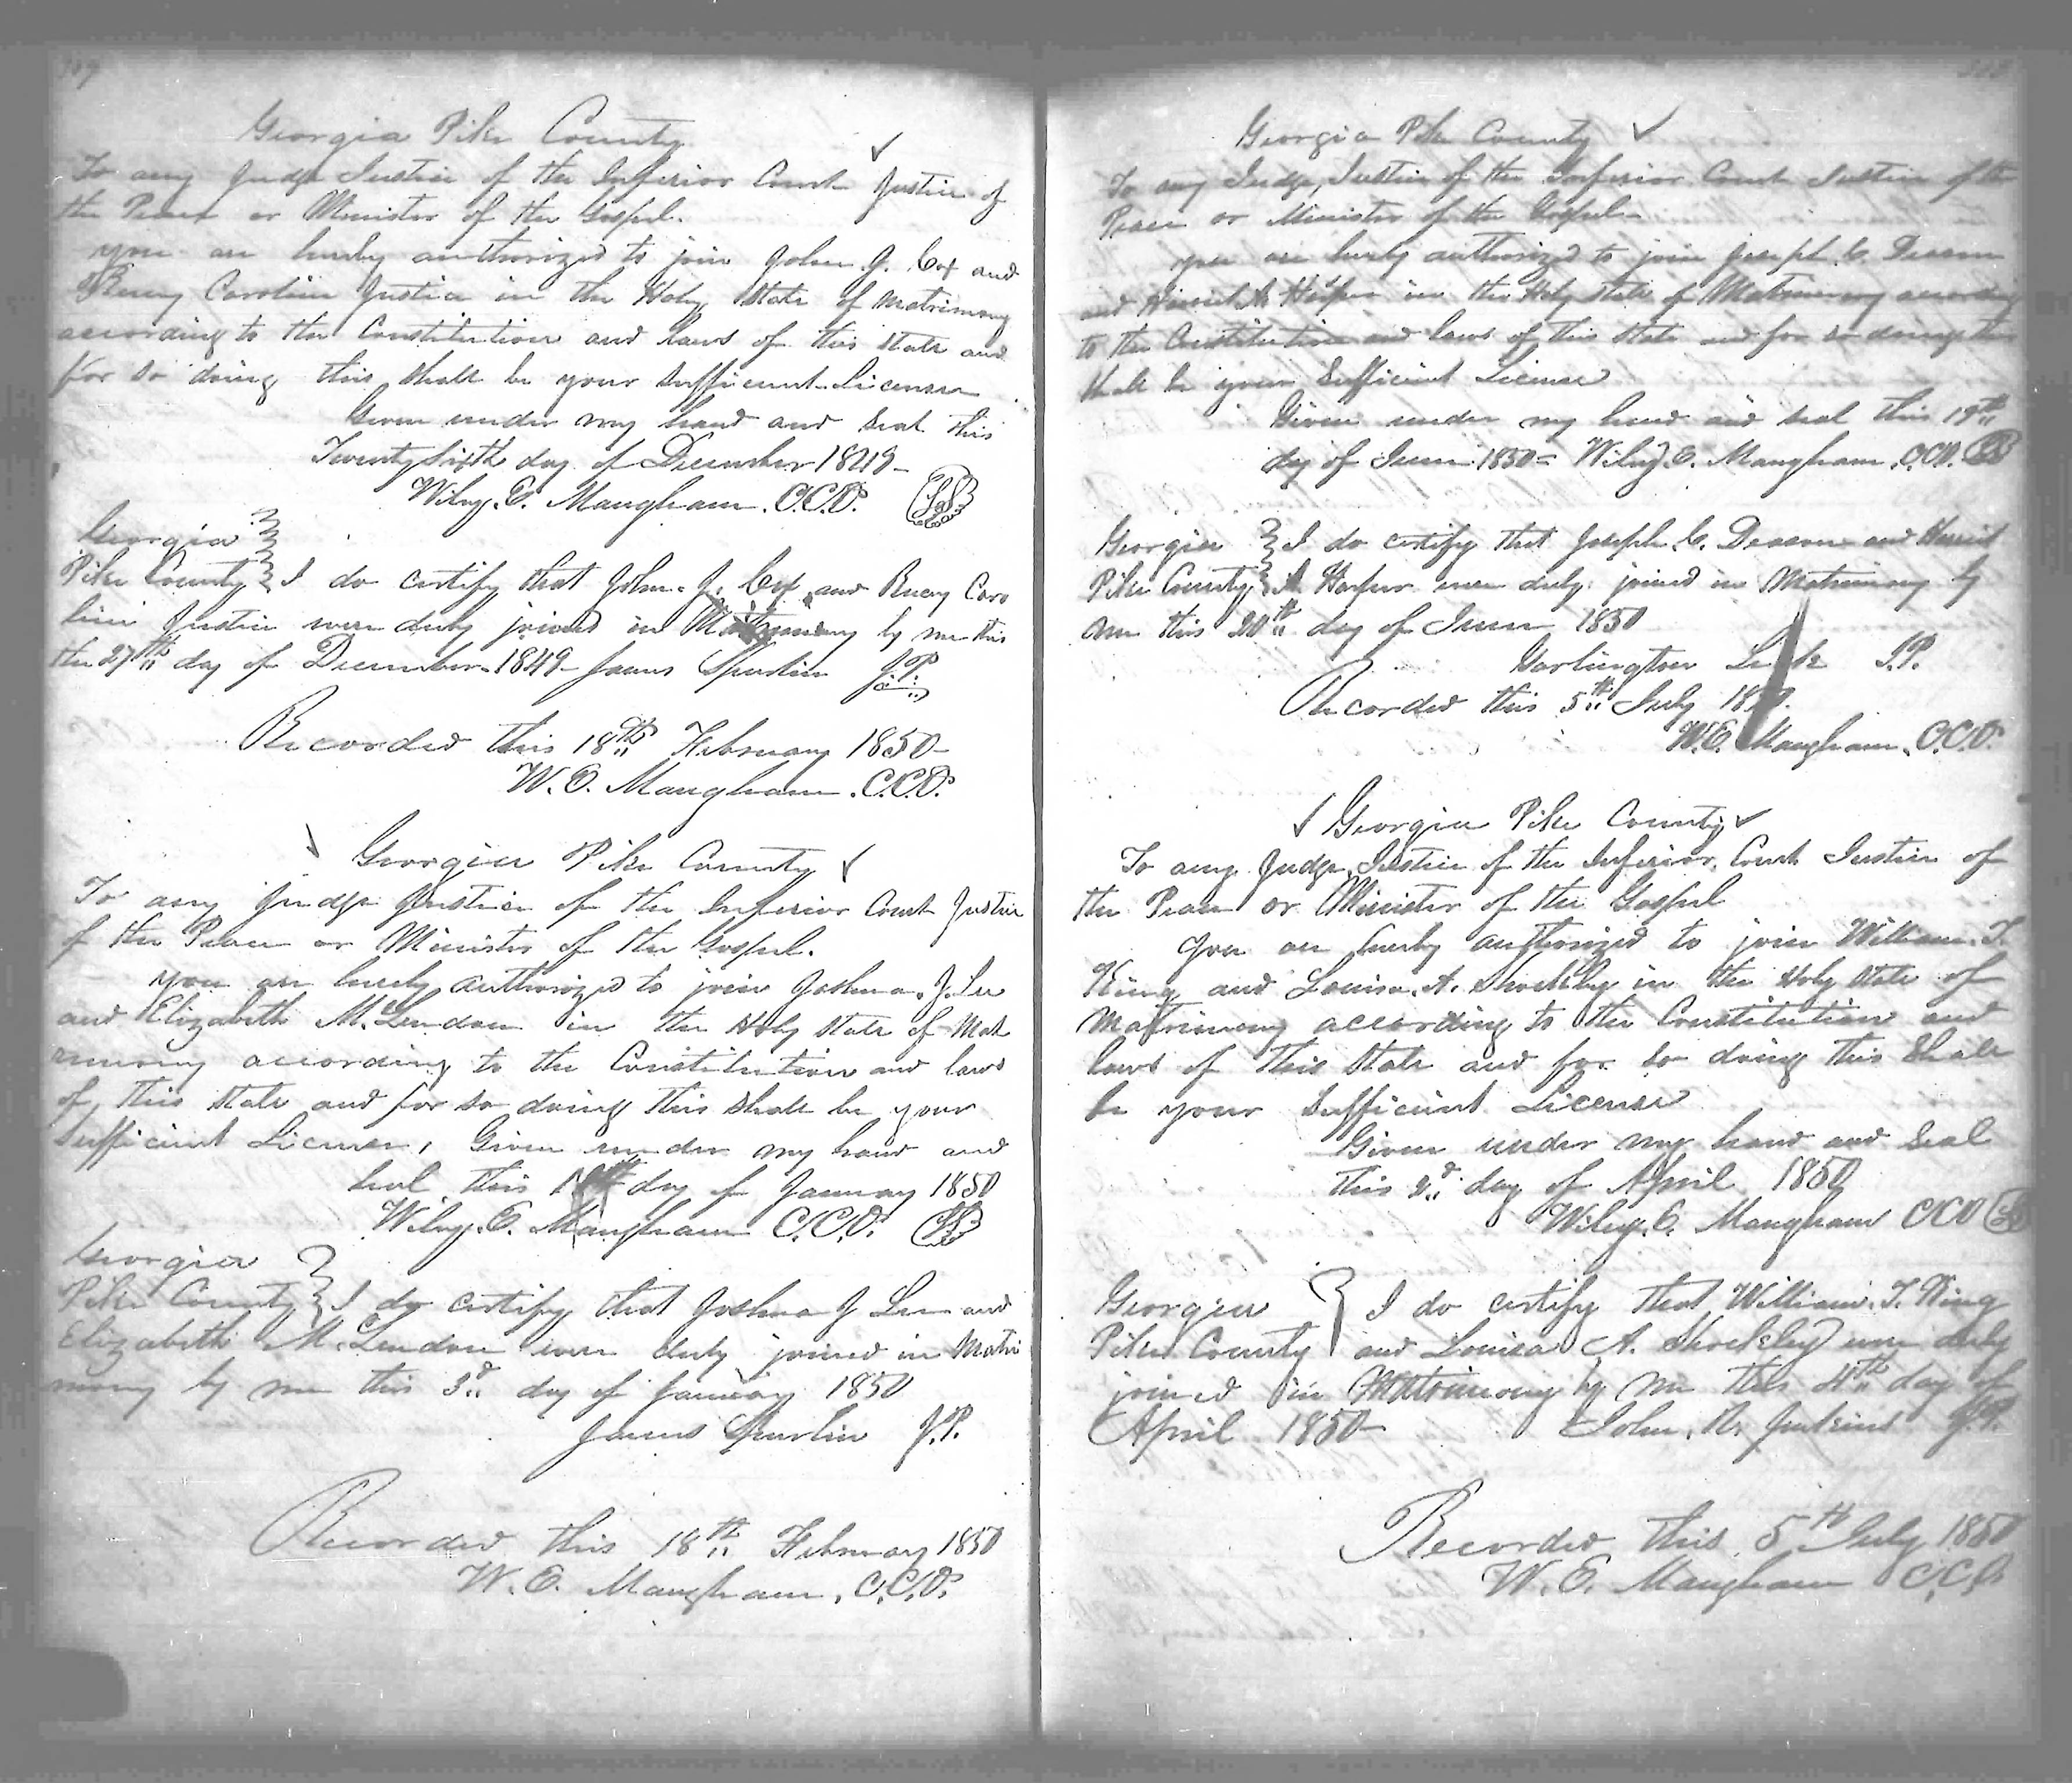 Georgia Pike County
To any Judge Justice of the Inferior Court Justice of
the Peace or Minister of the Gospel.
you are hereby authorized to join John J. Cox and
Caroline Justice in the Holy State of Matrimony
according to the Constitution and laws of this State and
for so doing this shall be your sufficient License
Given under my hand and seal this
Twenty Sixth day of December 1849
Wiley. E. Mangham. C.C.O. LS
Georgia
Pike County I do certify that John. J. Cox and Caro
line Justice were duly joined in Matrimony by me this
the 27th day of December 1849 James Spurlin J.P.
Recorded this 18th February 1850
W. E. Mangham. C.C.O.
Georgia Pike County
To any Judge Justice of the Inferior Court Justice
of the Peace or Minister of the Gospel.
you are hereby authorized to join Joshua. J. Lee
and Elizabeth McLendon in the Holy State of Mat
rimony according to the Constitution and laws
of this State and for so doing this shall be your
sufficient License, Given under my hand and
seal this day of January 1850
Wiley. E. Mangham C.C.O. LS
Georgia
Pike County I do certify that Joshua J Lee and
Elizabeth McLendon were duly joined in Matri
mony by me this 3d day of January 1850
James Spurlin J.P.
Recorded this 18th February 1850
W. E. Mangham. C.C.O.
Georgia Pike County
To any Judge, Justice of the Inferior Court Justice of the
Peace or Minister of the Gospel
you are hereby authorized to join Joseph. C. Deason
and Harriet A Harper in the Holy state of Matrimony according
to the Constitution and laws of this State and for so doing this
shall be your Sufficient License
Given under my hand and seal this 19th
day of June 1850 Wiley. E. Mangham. C.C.O. LS
Georgia I do certify that Joseph. C. Deason and Harriet
Pike County A Harper were duly joined in Matrimony by
me this 20th day of June 1850
Garlington J.P.
Recorded this 5th July
W. E. Mangham. C.C.O.
Georgia Pike County
To any Judge, Justice of the Inferior Court Justice of
the Peace or Minister of the Gospel
you are hereby authorized to join William. T.
King and Louisa. A. Shockley in the Holy State of
Matrimony according to the Constitution and
laws of this State and for so doing this Shall
be your Sufficient License
Given under my hand and Seal
this 2d day of April 1850
Wiley. E. Mangham CCO LS
Georgia I do certify that William. T. King
Pike County and Louisa A. Shockley were duly
joined in Matrimony by me this 4th day of
April 1850 John. R. Jenkins J.P.
Recorded this 5th July 1850
W. E. Mangham C.C.O.